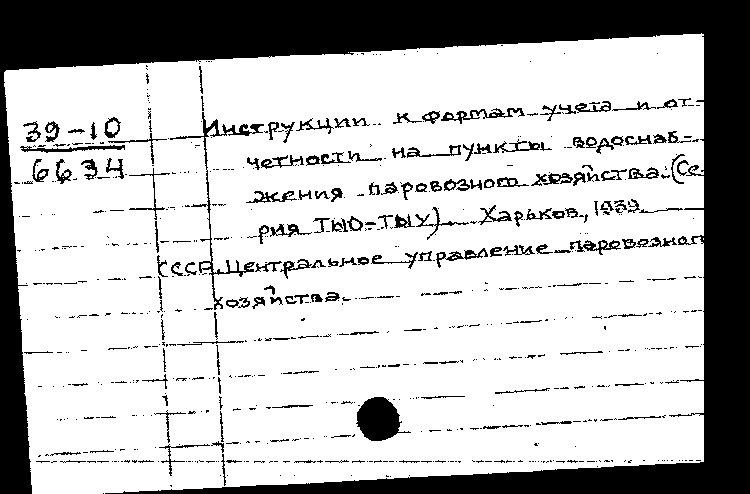 39-10
6634
Инструкции к формам учета и от-
четности на пункты водоснаб-
жения паровозного хозяйства. (Се-
рия ТЫО-ТЫУ). Харьков, 1939.
СССР. Центральное управление паровозного
хозяйства.